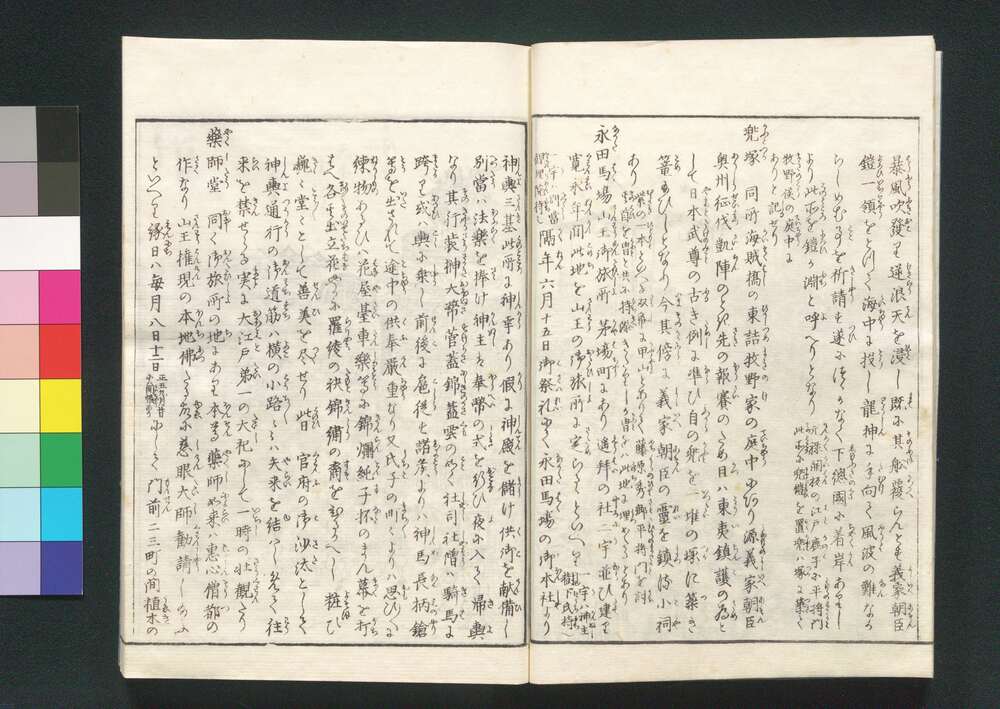 暴風吹發り逆浪天を浸し既に其船覆らんとす義家朝臣
鎧一領をとつて海中に投し龍神に手向て風波の難なか
らしめむ事を祈請す遂に恙なく下總國に着岸ありしに
より此所を鎧か淵と呼へりとなり
牧野侯の庭中にありと記せり
兜塚 同所海賊橋の東詰牧野家の庭中にあり源義家朝臣
奥州征伐凱陣のとき先の報賽のため且ハ東夷鎮護の為と
して日本武尊の古き例に準ひ自の兜を一堆の塚に築き
篭給ひしとなり今其傍に義家朝臣の靈を鎮る小祠
あり
永田馬場山王御旅所 茅場町にあり遥拜の社二宇並ひ建り
寛永年間此地を山王の御旅所に定らるといへり
隔年六月十五日御祭礼にて永田馬場の御本社より
神輿三基此所に神幸あり假に神殿を儲け供御を献備し
別當ハ法樂を捧け神主ハ奉幣の式を行ひ夜に入て歸輿
なり其行裝榊大幣菅蓋錦蓋雲のことく社司社僧ハ騎馬に
跨り或ハ輿に乘し前後に扈從す諸侯よりハ神馬長柄鎗
等を出されて途中の供奉嚴重なり又氏子の町々よりハ思ひ〳〵
練物あるひハ花屋臺車樂等に錦爛純子抔のまん幕を打
はへ各出立花やかに羅綾の袂錦繍の裔をひるかへし粧ひ
巍々堂々として善美を尽せり此日 官府の御沙汰として
神輿通行の御道筋ハ横の小路々々ハ矢来を結ハしめて往
來を禁せらる実に大江戸第一の大祀にして一時の壮観たり
藥師堂 同く御旅所の地にあり本尊藥師如来ハ恵心僧都の
作なり山王権現の本地佛たる故に慈眼大師勧請し給ふ
といへり縁日ハ毎月八日十二日にして門前二三町の間植木の